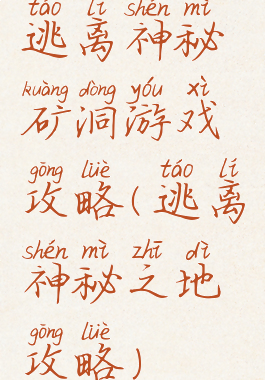 táo lí shén mì
逃离神秘
kuàng dòng yóu xì
矿洞游戏
gōng lüè táo lí
攻略(逃离
shén mì zhī dì
神秘之地
gōng lüè
攻略)